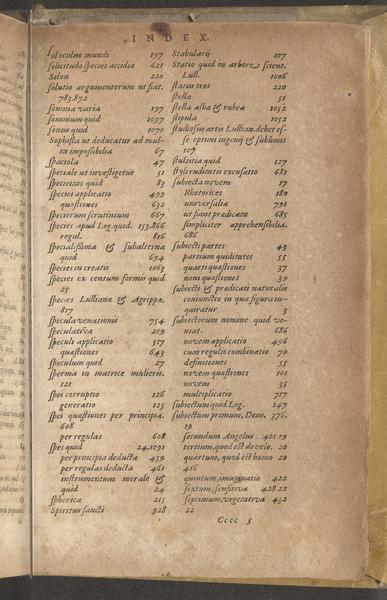 INDEX.
sol oculus mundi 197
solicitudo species accidiæ 621
Solon 220
solutio argumentorum ut fiat.
783.872
somnia varia 197
somnium quid 1097
sonus quid 1070
Sophista ut deducatur ad mul-
ta impossibilia 67
spaciosa 47
speciale ut investigetur 51
specieitas quid 83
species applicatio 499
quæstiones 632
specierum scrutinium 667
species apud Log. quid. 153.866
regul. 816
specialissima & subalterna
quid 694
species in creatis 1063
species ex centum formis quid
25
species Lullianæ & Agrippæ.
817
specula venationis 754
speculativa 209
speculi applicatio 517
quæstiones 643
speculum quid 27
sperma in matrice mulieris.
121
spei corruptio 126
generatio 123
spei quæstiones per principia.
608
per regulas 608
spes quid 24.1091
per principia deducta 459
per regulas deducta 461
instrumentum morale &
quid 24
spherica 215
Spiritus sancti 928
Stabularij 107
Statio quid in arbore scient.
Lull. 1006
status tres 220
stella 51
stella alba & rubea 1052
stipula 1052
studiosus artis Lullianæ debet es-
se optimi ingenij & sublimis
109
stultitia quid 127
styli ruditatis excusatio 681
subiecta novem 17
Rhetorices 180
universalia 791
ut fiant prædicata 685
simpliciter apprehensibilia.
686
subiecti partes 43
partium quiditates 55
quarti quæstiones 37
noni quæstiones 39
subiecti & prædicati naturalis
coniunctio in qua figura in-
quiratur 3
subiectorum nomine quid ve-
niat. 686
novem applicatio 496
cum regulis combinatio 70
definitiones 55
novem quæstiones 101
novem 35
multiplicatio 717
subiectum quid Log. 147
subiectum primum, Deus. 376.
19
secundum Angelus 401.19
tertium, quod est de cælo. 20
quartum, quod est homo 20
416
quintum, imaginatio 422
sextum, sensitiva 428.22
septimum, vegetativa 432
22
Cccc 5